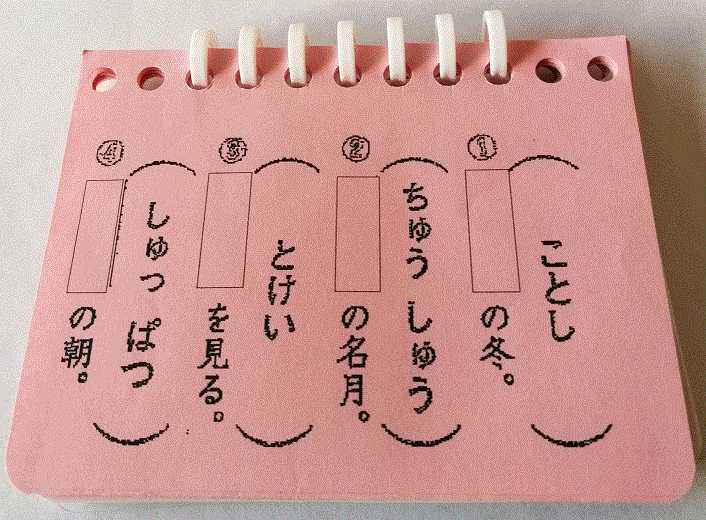 ①
(ことし)
の冬。
②
(ちゅうしゅう)
の名月。
③
(とけい)
を見る。
④
(しゅっぱつ)
の朝。